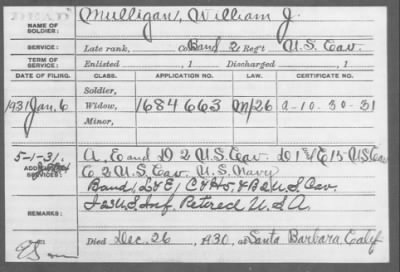 DEAD
NAME OF SOLDIER: Mulligan, William J.
SERVICE: Late rank, Co Band 2 Reg't U.S. Cav.
TERM OF SERVICE: Enlisted , 1 Discharged , 1
DATE OF FILING. CLASS. APPLICATION NO. LAW. CERTIFICATE NO.
Soldier,
1931 Jan. 6 Widow, 1684663 M/26 a-10-30-31
Minor,
5-1-31. A, E and D 2 U.S. Cav. E 15 U.S. Cav
ADDITIONAL SERVICES: E 2 U.S. Cav. U.S. Navy
Band, & 2 U.S. Cav.
REMARKS: U.S. Inf. Retired U.S.A.
Died Dec. 26, 1930, at Santa Barbara Calif